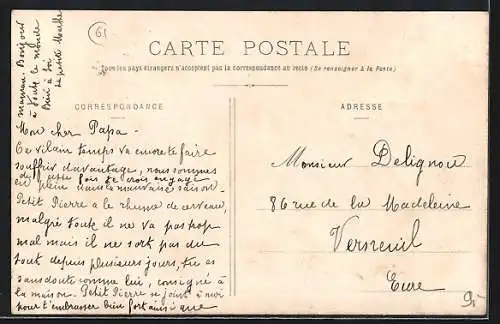 61
CARTE POSTALE
Tous les pays étrangers n'acceptent pas la correspondance au recto (Se renseigner à la Poste)
CORRESPONDANCE
Mon cher Papa -
Ce vilain temps va encore te faire
souffrir davantage, nous sommes
cette fois je crois engagé
en plein dans la mauvaise saison.
Petit Pierre a le rhume de cerveau,
malgré tout il ne va pas trop
mal mais il ne sort pas du
tout depuis plusieurs jours, tu es
sans doute comme lui, consigné à
la maison. Petit Pierre se joint à moi
pour t'embrasser bien fort ainsi que
maman. Bonjour
à toute le monde
à toi
ta petite
ADRESSE
Monsieur Delignou
86 rue de la Madeleine
Verneuil
Eure